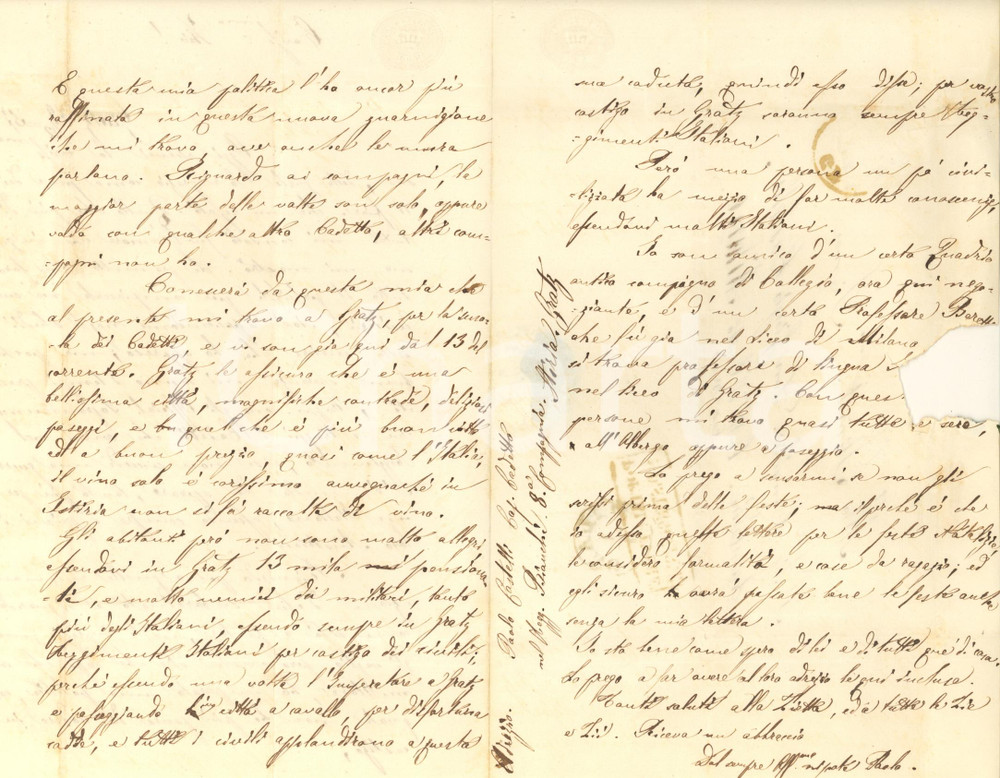 E questa mia politica l'ho ancor più
raffinata in questa nuova guarnigione
che mi trovo, ove anche le mura
parlano. Riguardo ai compagni, la
maggior parte delle volte son solo, oppure
vado con qualche altro Cadetto, altri com-
-pagni non ho.
Conoscerà da questa mia che
al presente mi trovo a Gratz, per la scuo-
-la dei Cadetti, e vi son già qui dal 13 del
corrente. Gratz le assicuro che è una
bellissima città, magnifiche contrade, deliziosi
passeggi, e quel che è più buon vitto
ed a buon prezzo quasi come l'Italia,
il vino solo è carissimo avvegnachè in
Istiria non si fà raccolta di vino.
Gli abitanti però non sono molto allegri
essendovi in Gratz 13 mila pensiona-
-ti, e molto nemici dei militari, tanto
più degli Italiani, essendo sempre in Gratz
Reggimenti Italiani per castigo dei civilisti,
perchè essendo una volta l'Imperatore a Gratz
e passeggiando in città a cavallo, per disfortuna
cadde, e tutti i civili applaudirono a questa
Adrizzo. Paolo Castelli Cap. Cadetto
nel Regg. Bianchi 8.a Compagnia. Stiria Gratz
sua caduta, quindi esso disse; per vostro
castigo in Gratz saranno sempre Reg-
-gimenti Italiani.
Però una persona un pò civi-
-lizzata ha mezzo di far molte conoscenze,
essendovi molti Italiani.
Io son amico d'un certo Quadrio
antico compagno di Collegio, ora qui nego-
-ziante, e d'un certo Professore
che fù già nel Liceo di Milano
si trova professore di lingua
nel liceo di Gratz. Con ques
persone mi trovo quasi tutte e sere,
o all'Albergo oppure a passeggio.
La prego a scusarmi se non gli
scrissi prima delle feste; ma il perchè è che
io adesso queste lettere per le feste Natalizie
le considero formalità, e cose da ragazzi; ed
egli sicuro avrà passate bene le feste anche
senza la mia lettera.
Io stò bene come spero di lei e di tutti quei di casa.
La prego a far avere al loro adrizzo le qui incluse.
Tanti saluti alla Zietta, ed a tutte le Zie
e Zii. Riceva un abbraccio
Dal sempre Aff.mo nipote Paolo.